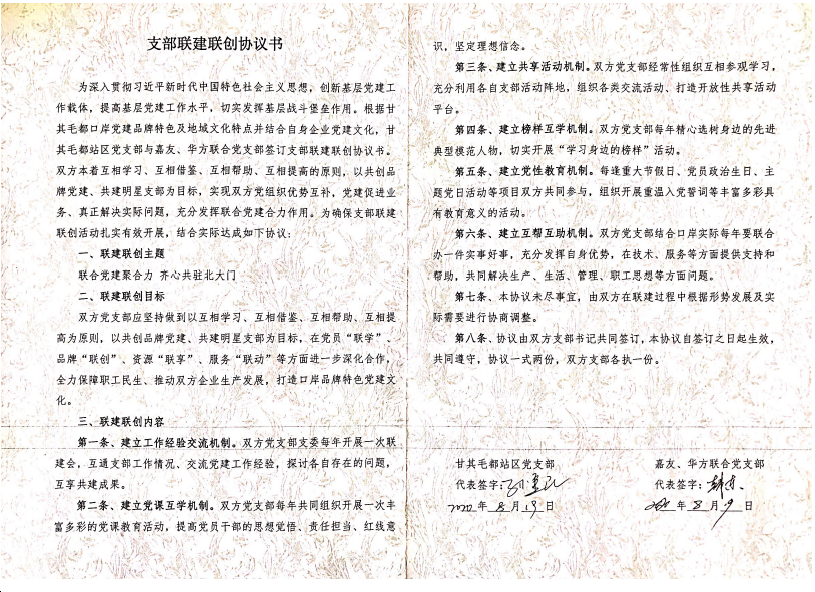 支部联建联创协议书
为深入贯彻习近平新时代中国特色社会主义思想，创新基层党建工
作载体，提高基层党建工作水平，切实发挥基层战斗堡垒作用。根据甘
其毛都口岸党建品牌特色及地域文化特点并结合自身企业党建文化，甘
其毛都站区党支部与嘉友、华方联合党支部签订支部联建联创协议书。
双方本着互相学习、互相借鉴、互相帮助、互相提高的原则，以共创品
牌党建、共建明星支部为目标，实现双方党组织优势互补，党建促进业
务、真正解决实际问题，充分发挥联合党建合力作用。为确保支部联建
联创活动扎实有效开展，结合实际达成如下协议：
一、联建联创主题
联合党建聚合力 齐心共驻北大门
二、联建联创目标
双方党支部应坚持做到以互相学习、互相借鉴、互相帮助、互相提
高为原则，以共创品牌党建、共建明星支部为目标，在党员“联学”、
品牌“联创”、资源“联享”、服务“联动”等方面进一步深化合作，
全力保障职工民生、推动双方企业生产发展，打造口岸品牌特色党建文
化。
三、联建联创内容
第一条、建立工作经验交流机制。双方党支部支委每年开展一次联
建会，互通支部工作情况、交流党建工作经验，探讨各自存在的问题，
互享共建成果。
第二条、建立党课互学机制。双方党支部每年共同组织开展一次丰
富多彩的党课教育活动，提高党员干部的思想觉悟、责任担当、红线意
识，坚定理想信念。
第三条、建立共享活动机制。双方党支部经常性组织互相参观学习，
充分利用各自支部活动阵地，组织各类交流活动、打造开放性共享活动
平台。
第四条、建立榜样互学机制。双方党支部每年精心选树身边的先进
典型模范人物，切实开展“学习身边的榜样”活动。
第五条、建立党性教育机制。每逢重大节假日、党员政治生日、主
题党日活动等项目双方共同参与，组织开展重温入党誓词等丰富多彩具
有教育意义的活动。
第六条、建立互帮互助机制。双方党支部结合口岸实际每年要联合
办一件实事好事，充分发挥自身优势，在技术、服务等方面提供支持和
帮助，共同解决生产、生活、管理、职工思想等方面问题。
第七条、本协议未尽事宜，由双方在联建过程中根据形势发展及实
际需要进行协商调整。
第八条、协议由双方支部书记共同签订，本协议自签订之日起生效，
共同遵守，协议一式两份，双方支部各执一份。
甘其毛都站区党支部
代表签字：
2020 年 8 月 19 日
嘉友、华方联合党支部
代表签字：
2020 年 8 月 19 日